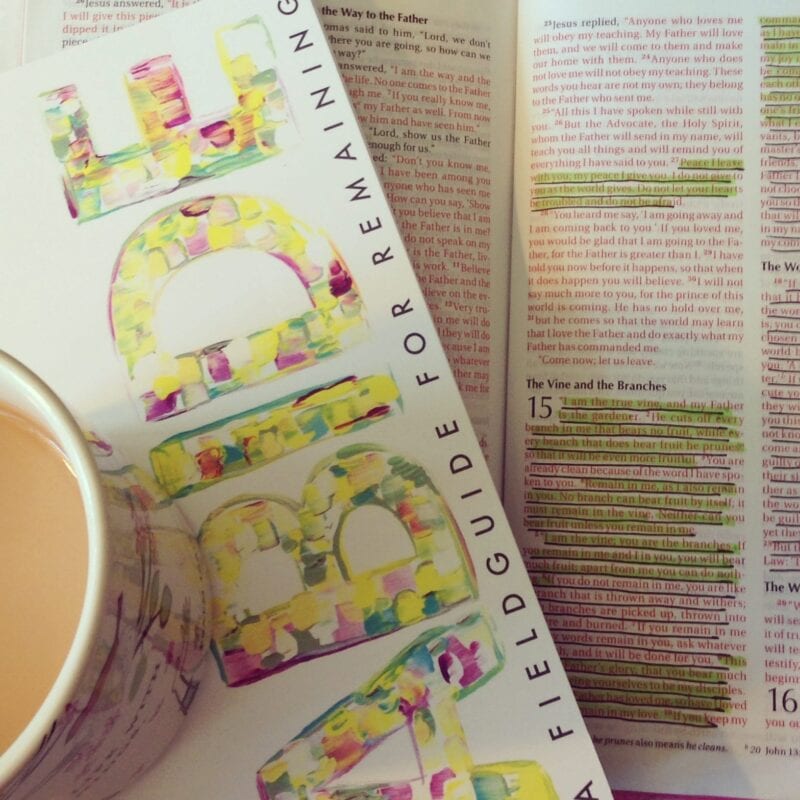 ABIDE
A FIELDGUIDE FOR REMAINING
Jesus answered, "It is
I will give this piec
dipped it in
piece
the Way to the Father
omas said to him, "Lord, we don't
where you are going, so how can we
way?"
answered, "I am the way and the
he life. No one comes to the Father
ugh me. 7"If you really know me,
my Father as well. From now
w him and have seen him."
"Lord, show us the Father
enough for us."
ed: "Don't you know me,
I have been among you
nyone who has seen me
How can you say, 'Show
you believe that I am
the Father is in me?
do not speak on my
is the Father, liv-
s work. 11Believe
e Father and the
elieve on the ev-
12Very tru-
in me will do
because I am
whatever
ther may
k me for
23Jesus replied, "Anyone who loves me
will obey my teaching. My Father will love
them, and we will come to them and make
our home with them. 24Anyone who does
not love me will not obey my teaching. These
words you hear are not my own; they belong
to the Father who sent me.
25"All this I have spoken while still with
you. 26But the Advocate, the Holy Spirit,
whom the Father will send in my name, will
teach you all things and will remind you of
everything I have said to you. 27Peace I leave
with you; my peace I give you. I do not give to
you as the world gives. Do not let your hearts
be troubled and do not be afraid.
28"You heard me say, 'I am going away and
I am coming back to you.' If you loved me,
you would be glad that I am going to the Fa-
ther, for the Father is greater than I. 29I have
told you now before it happens, so that when
it does happen you will believe. 30I will not
say much more to you, for the prince of this
world is coming. He has no hold over me,
31but he comes so that the world may learn
that I love the Father and do exactly what my
Father has commanded me.
"Come now; let us leave.
The Vine and the Branches
15 "I am the true vine, and my Father
is the gardener. 2He cuts off every
branch in me that bears no fruit, while ev-
ery branch that does bear fruit he prunes
so that it will be even more fruitful. 3You are
already clean because of the word I have spo-
ken to you. 4Remain in me, as I also remain
in you. No branch can bear fruit by itself; it
must remain in the vine. Neither can you
bear fruit unless you remain in me.
5"I am the vine; you are the branches. If
you remain in me and I in you, you will bear
much fruit; apart from me you can do noth-
6If you do not remain in me, you are like
branch that is thrown away and withers;
branches are picked up, thrown into
re and burned. 7If you remain in me
words remain in you, ask whatever
h, and it will be done for you. 8This
Father's glory, that you bear much
ing yourselves to be my disciples.
ather has loved me, so have I loved
main in my love. 10If you keep my
he prunes also means he cleans.
20 John 13:
The Wo
The W
16